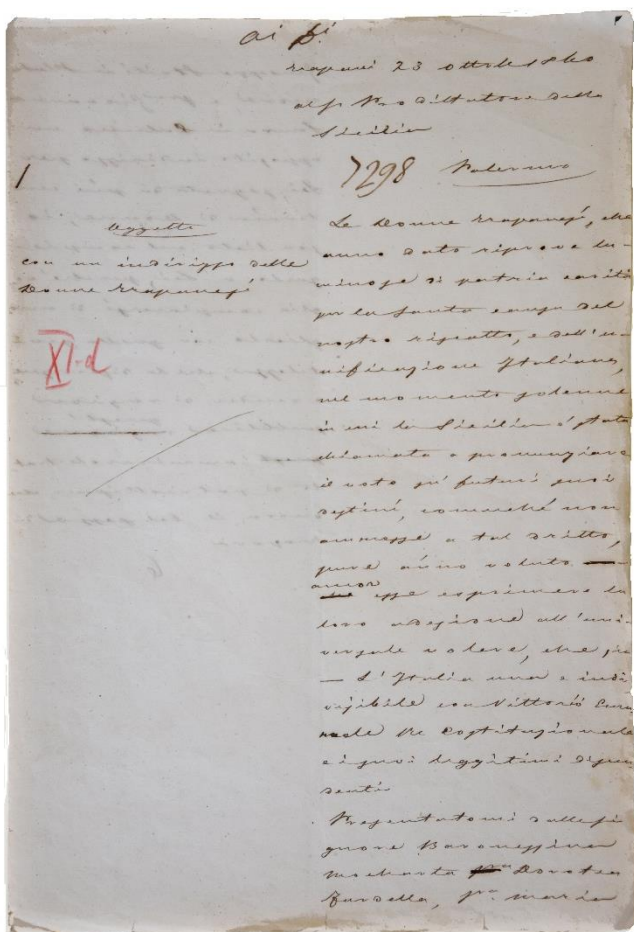 Trapani 23 ottobre 1860
Al Sr Pro Dittatore della
Sicilia
7298 Palermo
1
Oggetto
con un indirizzo delle
Donne Trapanesi
XI-d
Le Donne Trapanesi, che
anno dato riprove lu-
minose di patria carità
per la santa causa del
nostro riscatto, e dell'u-
nificazione Italiana,
nel momento solenne
in cui la Sicilia è stata
chiamata a pronunziare
il voto pei futuri suoi
destini, comecché non
ammesse a tal dritto,
pure ànno voluto
ancor esse esprimere la
loro adesione all'uni-
versale volere, che sia
— L'Italia una e indi-
visibile con Vittorio Ema-
nuele Re Costituzionale
e i suoi leggittimi discen-
denti
Presentatomi dalle si
gnore Baronessina
Mocharta Dorotea
Fardella, Sra. Maria